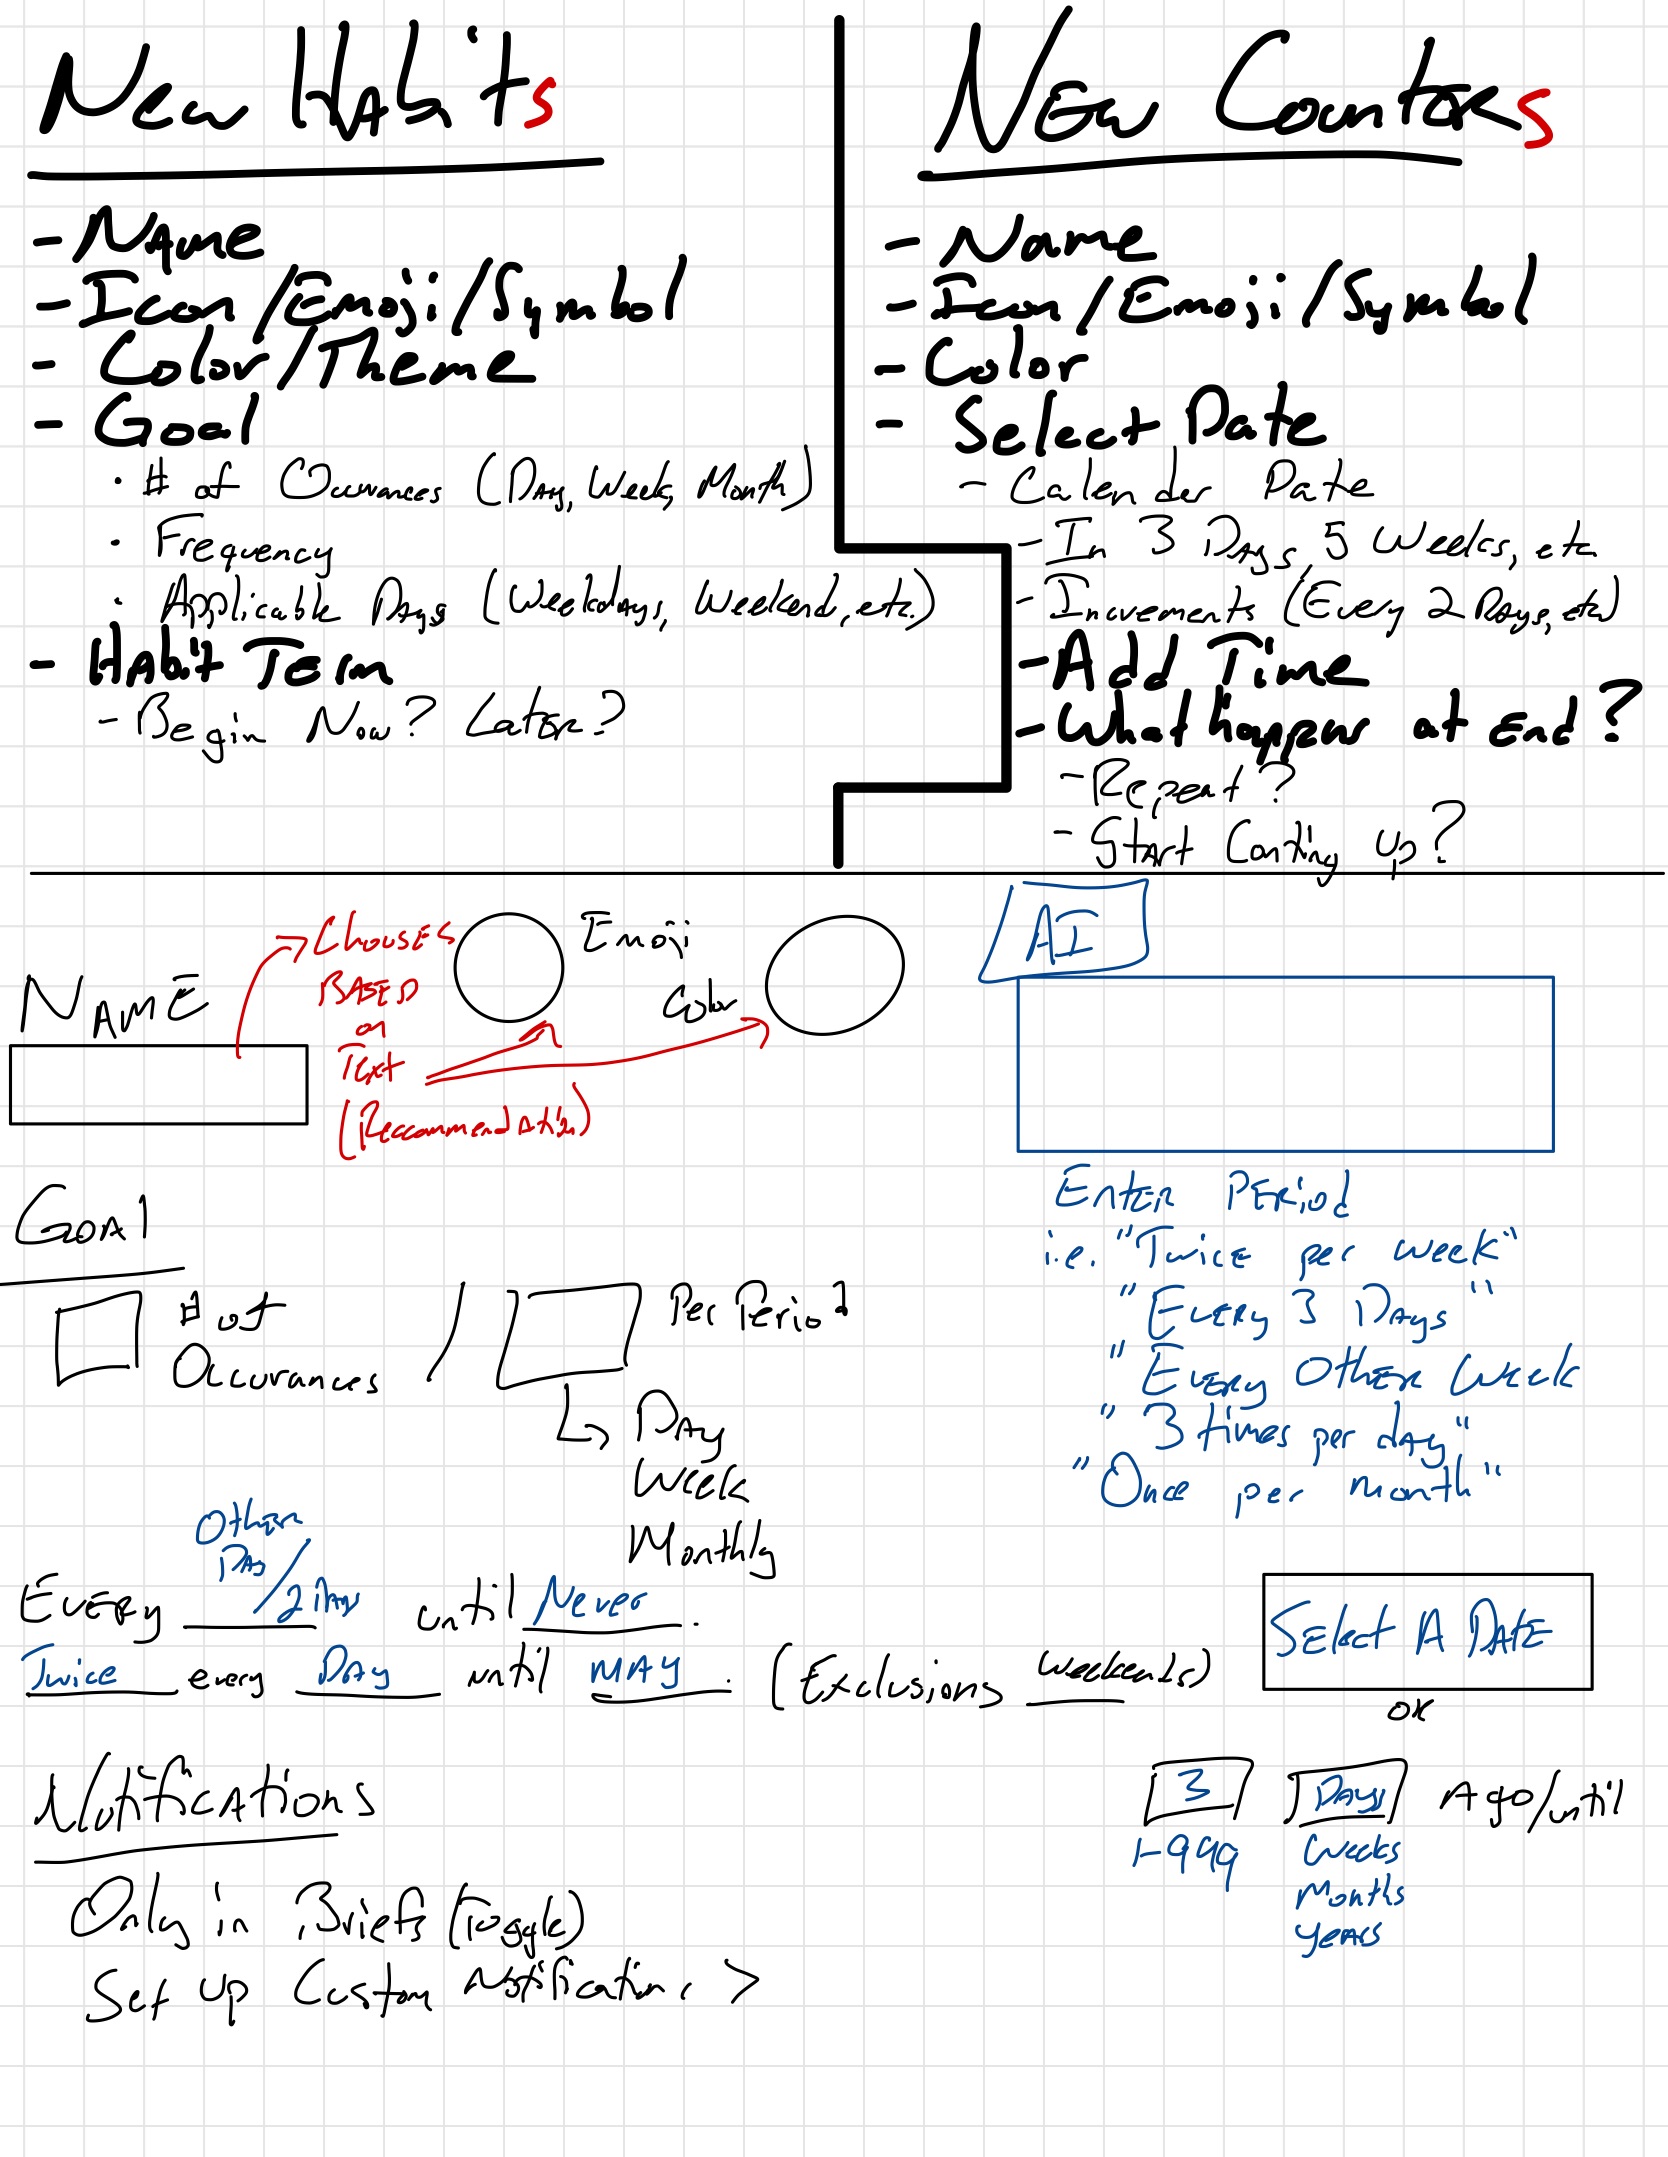 New Habits
- Name
- Icon/Emoji/Symbol
- Color/Theme
- Goal
· # of Occurances (Day, Week, Month)
· Frequency
· Applicable Days (Weekdays, Weekend, etc.)
- Habit Term
- Begin Now? Later?
New Counters
- Name
- Icon/Emoji/Symbol
- Color
- Select Date
- Calender Date
- In 3 Days, 5 Weeks, etc
- Increments (Every 2 Days, etc)
- Add Time
- What happens at End?
- Repeat?
- Start Conting up?
Name
Chouses
Based
on
Text
(Reccommendation)
Emoji
Color
AI
Enter Period
i.e. "Twice per week"
"Every 3 Days"
"Every Other Week
"3 times per day"
"Once per month"
Goal
# of
Occurances
/
Per Period
Day
Week
Monthly
Other
Day/
Every 2 Day until Never.
Twice every Day until May. (Exclusions Weekends)
Select A Date
or
3 Days Ago/until
1-999
Weeks
Months
Years
Notifications
Only in Briefs (Toggle)
Set up Custom Notifications >